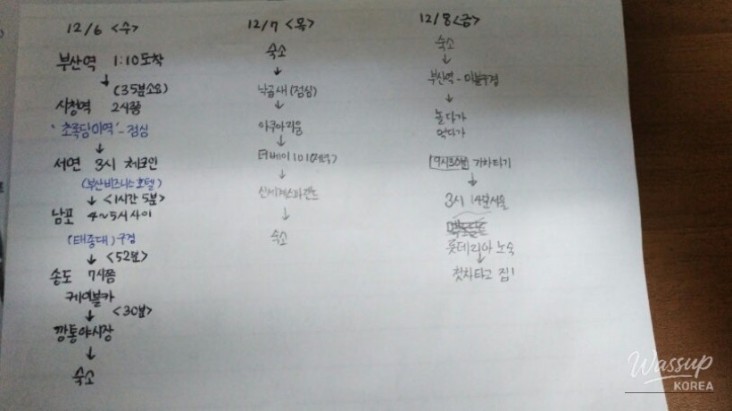 12/6 <수>
부산역 1:10도착
↓ (35분소요)
시청역 2시쯤
"초록담미역" - 점심
↓
서면 3시 체크인
(부산비즈니스호텔)
↓ <1시간 5분>
남포 4~5시 사이
(태종대) 구경
↓ <52분>
송도 7시쯤
케이블카
↓ <30분>
깡통야시장
↓
숙소
12/7 <목>
숙소
↓
낙곱새 (점심)
↓
아쿠아리움
↓
더베이101
↓
신세계스파랜드
↓
숙소
12/8 <금>
숙소
↓
부산역 -
↓
놀다가
먹다가
↓
기차타기
↓
3시 14분서울
롯데리아 노숙
↓
첫차타고 집!
Wassup
KOREA